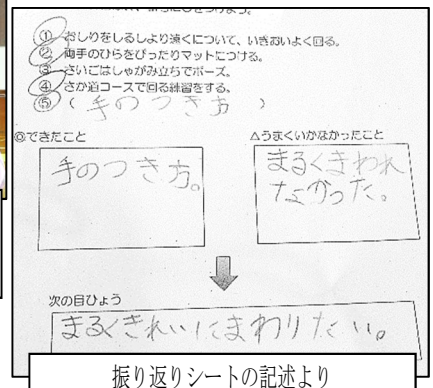 ① おしりをしるしより遠くについて、いきおいよく回る。
② 両手のひらをぴったりマットにつける。
③ さいごはしゃがみ立ちでポーズ。
④ さか道コースで回る練習をする。
⑤ ( 手のつき方 )
◎できたこと
△うまくいかなかったこと
手のつき方。
まるくまわれ
なかった。
次の目ひょう
まるくきれいにまわりたい。
振り返りシートの記述より